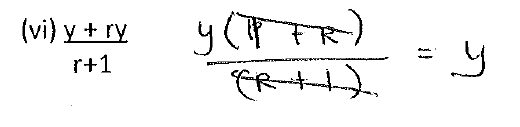 (vi) y + ry / r+1 y(1 + R) / (R + 1) = y